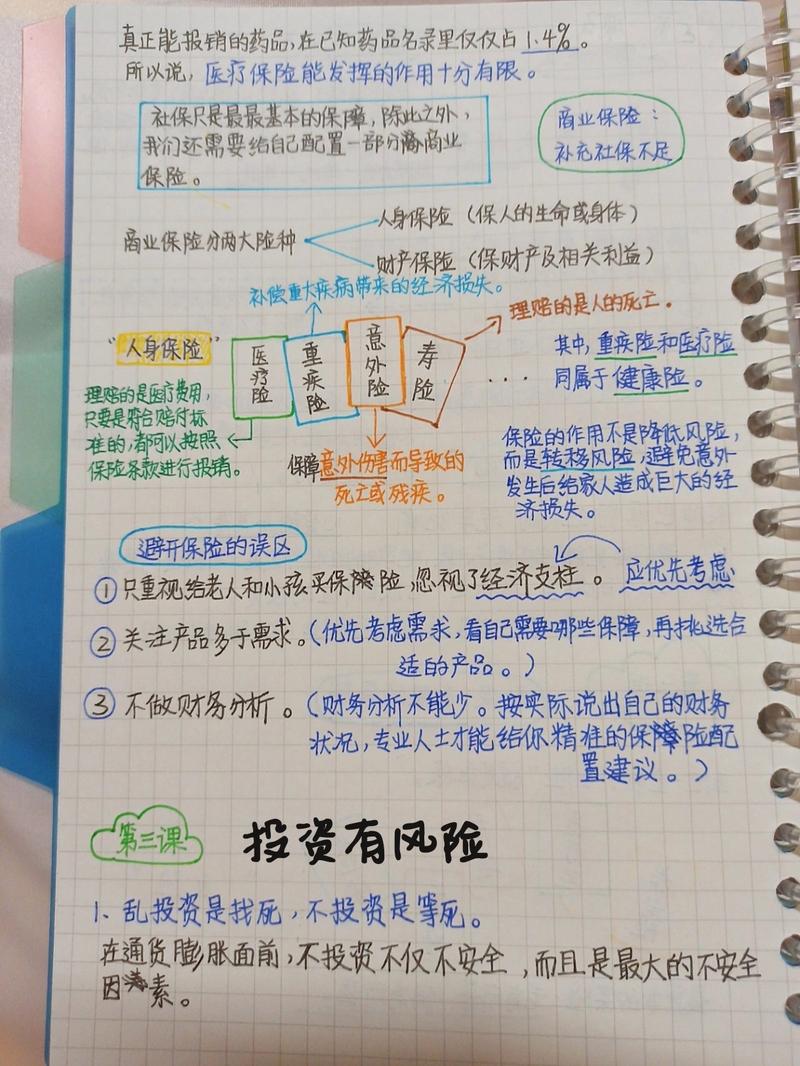 真正能报销的药品,在已知药品名录里仅仅占1.4%。
所以说,医疗保险能发挥的作用十分有限。
社保只是最最基本的保障,除此之外,
我们还需要给自己配置一部分商业
保险。
商业保险:
补充社保不足
商业保险分两大险种
人身保险(保人的生命或身体)
财产保险(保财产及相关利益)
补偿重大疾病带来的经济损失。
理赔的是人的死亡。
"人身保险"
医疗险
重疾险
意外险
寿险
...
其中,重疾险和医疗险
同属于健康险。
理赔的是医疗费用,
只要是符合赔付标
准的,都可以按照
保险条款进行报销。
保障意外伤害而导致的
死亡或残疾。
保险的作用不是降低风险,
而是转移风险,避免意外
发生后给家人造成巨大的经
济损失。
避开保险的误区
①只重视给老人和小孩买保险,忽视了经济支柱。应优先考虑
②关注产品多于需求。(优先考虑需求,看自己需要哪些保障,再挑选合
适的产品。)
③不做财务分析。(财务分析不能少。按实际说出自己的财务
状况,专业人士才能给你精准的保险配
置建议。)
第三课
投资有风险
1、乱投资是找死,不投资是等死。
在通货膨胀面前,不投资不仅不安全,而且是最大的不安全
因素。